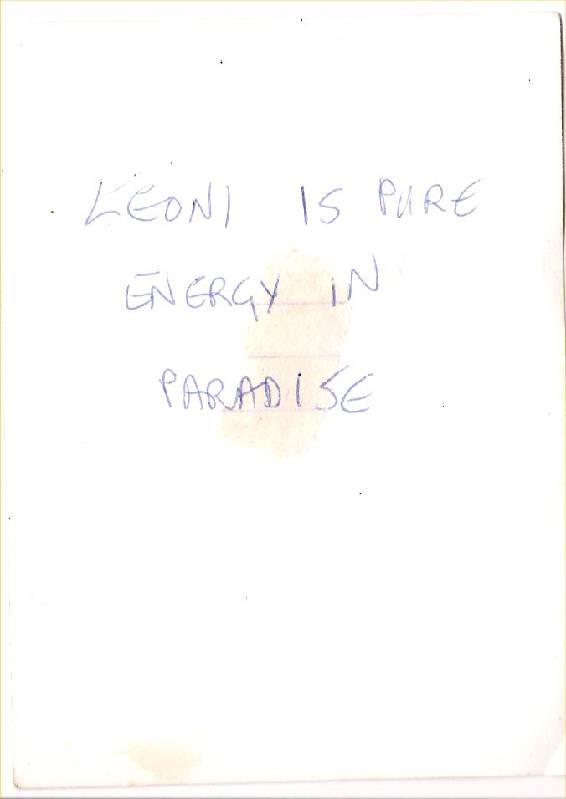 LEONI IS PURE
ENERGY IN
PARADISE